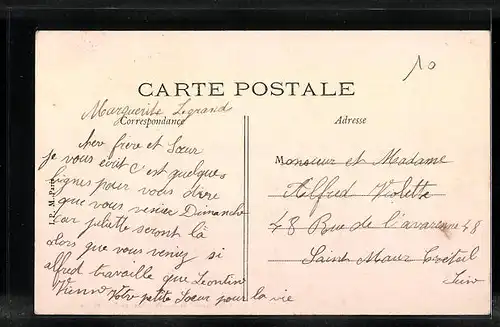 10
CARTE POSTALE
Marguerite Legrand
Correspondance
Adresse
I.P.M. Paris
cher frere et Sœur
je vous écrit c'est quelques
lignes pour vous dire
que vous venier Dimanche
car juliette seront là
alors que vous veniez si
alfred travaille que Leontin
Vienne Votre petite Sœur pour la vie
Monsieur et Madame
Alfred Violette
48 Rue de l'avarenne 48
Saint Maur Creteil